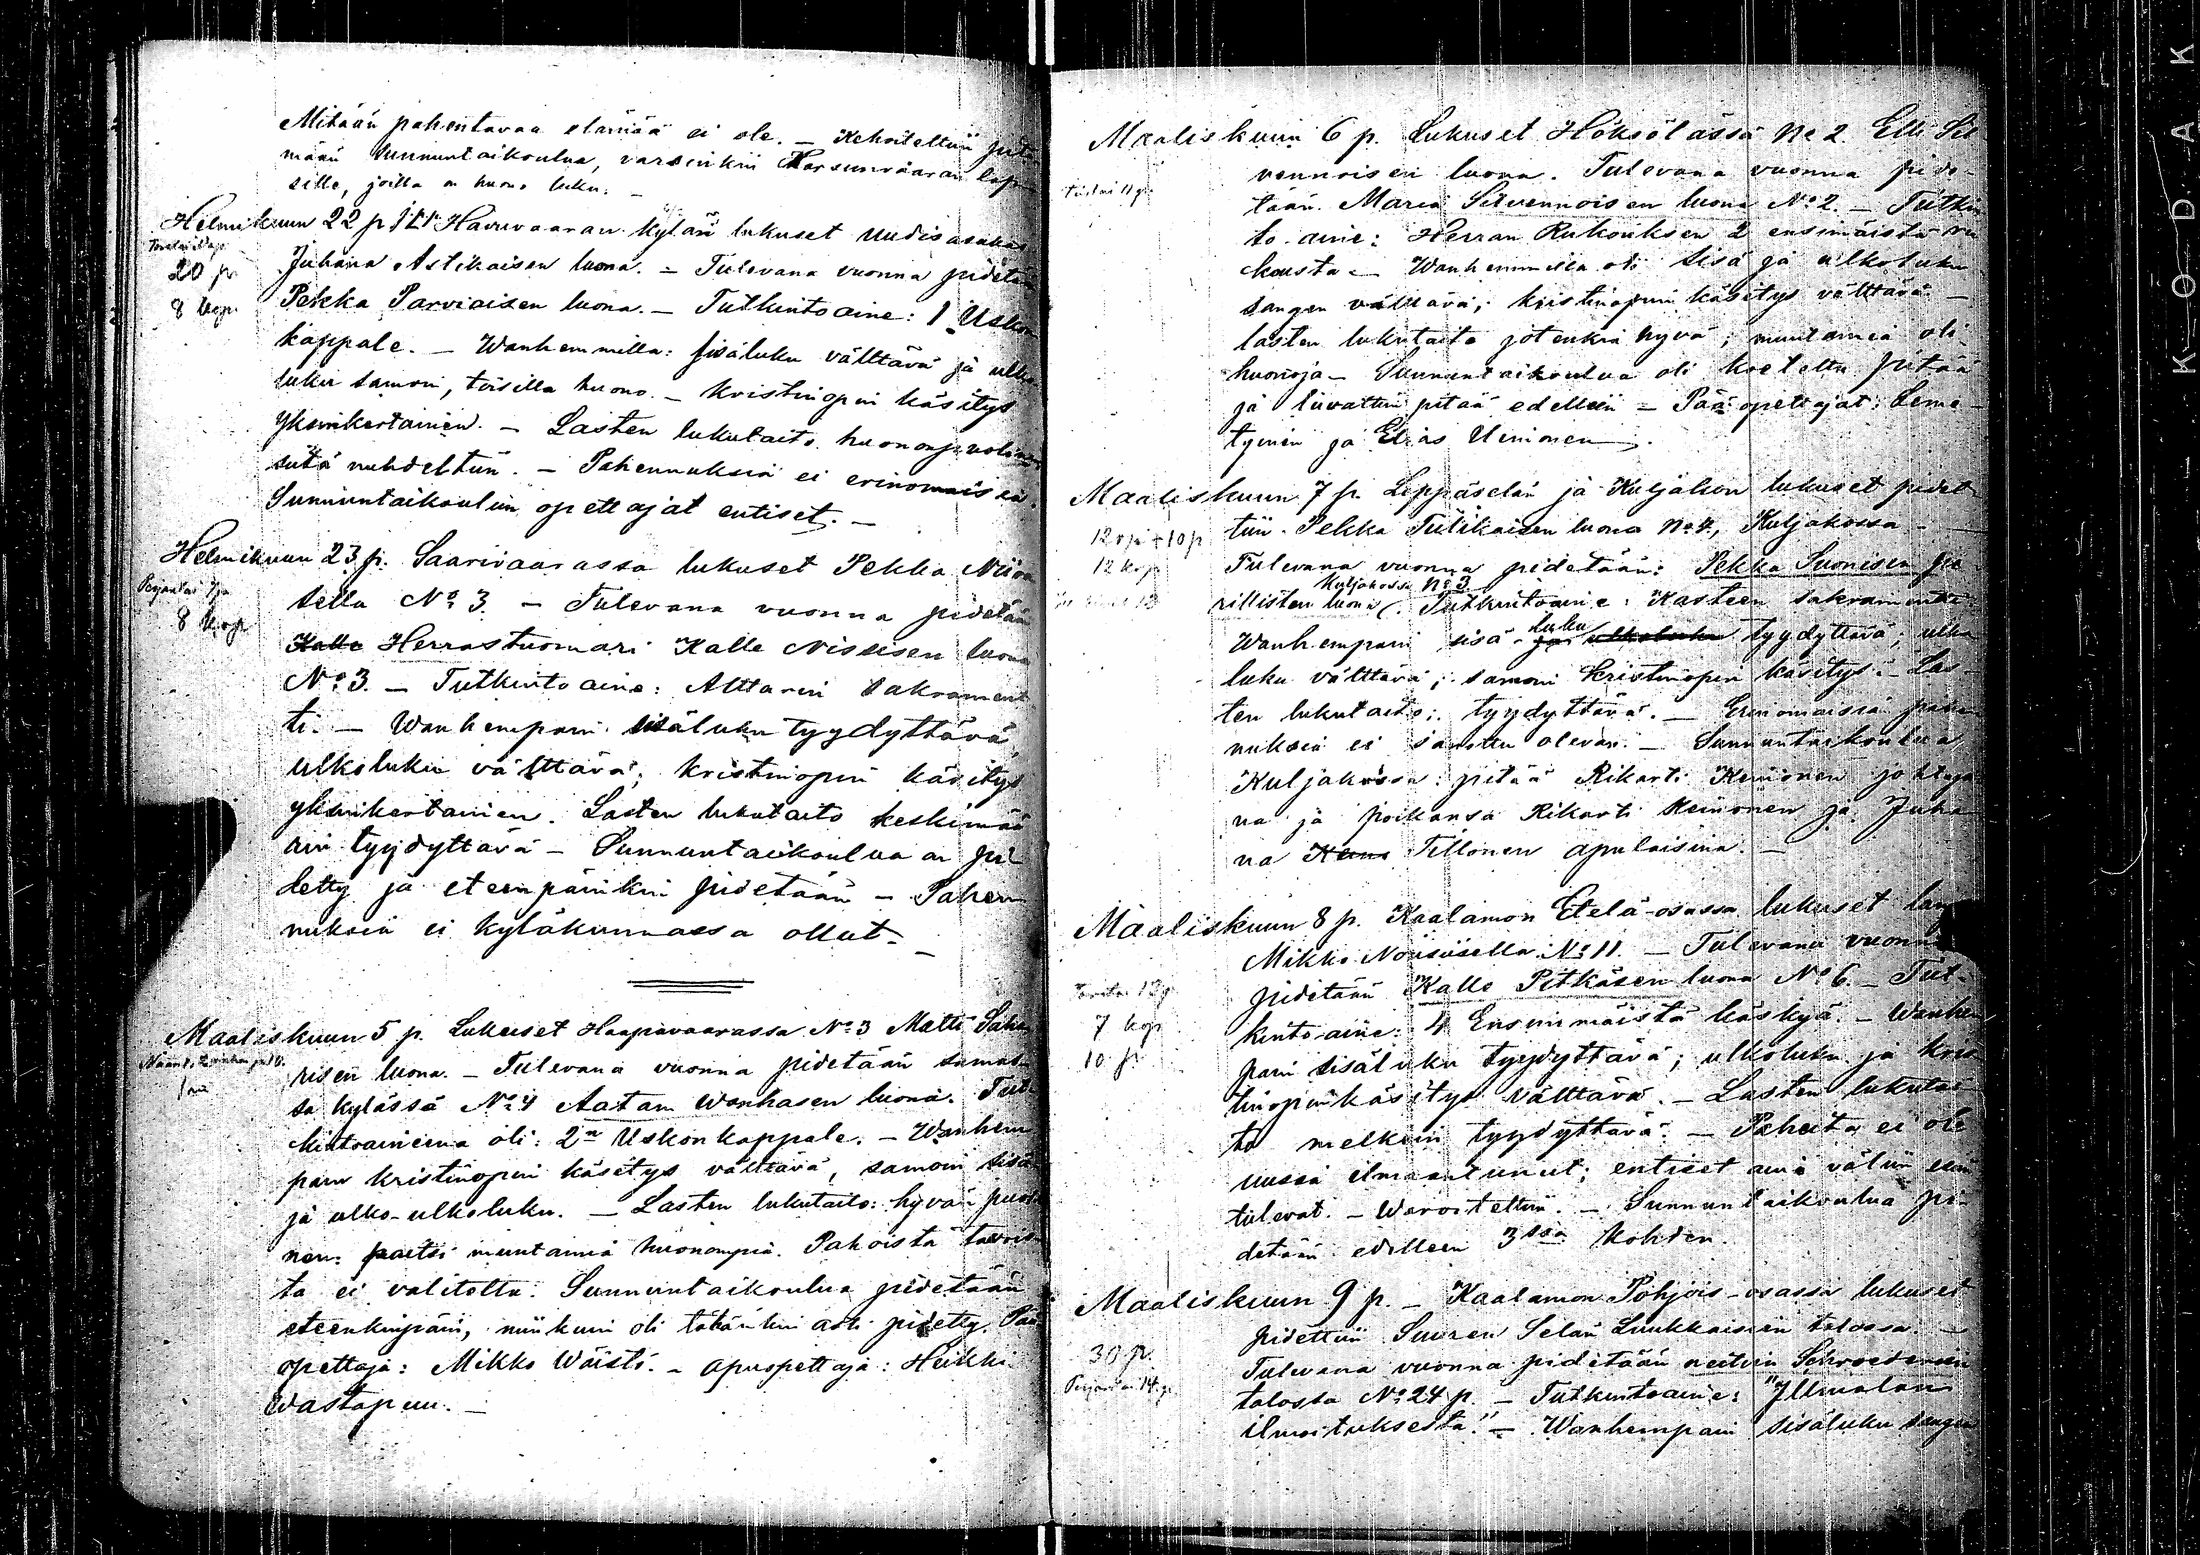 Mitään pahentavaa elämää ei ole. — Kehoiteltiin pitä
mään sunnuntaikoulua, varsinkin Korsunvaaran lap
sille, joilla on huono luku. —
Helmikuun 22 p. Havuvaaran kylän lukuset Uudisasukas
20 p.
Juhana Astikaisen luona. — Tulevana vuonna pidetään
8 kop.
Pekka Parviaisen luona. — Tutkintoaine: 1 Uskon
kappale. — Wanhemmilla: sisäluku välttävä ja ulko
luku samoin, toisilla huono. — Kristinopin käsitys
yksinkertainen. — Lasten lukutaito huononpuolinen
siitä nuhdeltiin. — Pahennuksia ei erinomaisia.
Sunnuntaikoulun opettajat entiset. —
Helmikuun 23 p. Saarivaarassa lukuset Pekka Niira
Perjantai 7 p.
sella No 3. — Tulevana vuonna pidetään
8 kop.
Kalle Herrastuomari Kalle Nissisen luona
No 3. — Tutkintoaine: Alttarin sakrament
ti. — Wanhempain sisäluku tyydyttävä,
ulkoluku välttävä; kristinopin käsitys
yksinkertainen. Lasten lukutaito keskimää
rin tyydyttävä — Sunnuntaikoulua on pi
detty ja eteenpäinkin pidetään — Pahen
nuksia ei kyläkunnassa ollut. —
Maaliskuun 5 p. Lukuset Haapavaarassa No 3 Matti Saha
risen luona. — Tulevana vuonna pidetään samas
sa kylässä No 4 Aatam Wanhasen luona. Tut
kintoaineena oli: 2n Uskonkappale. — Wanhem
pain kristinopin käsitys välttävä, samoin sisä
ja ulko-ulkoluku. — Lasten lukutaito: hyvän puoli
nen: paitsi muutamia huonompia. Pahoista tavois
ta ei valitettu. Sunnuntaikoulua pidetään
eteenkinpäin, niinkuin oli tähänkin asti pidetty. Pää
opettaja: Mikko Wäistö. — apuopettaja: Heikki
Wastapuu. —
Maaliskuun 6 p. Lukuset Höksölässä No 2. Elli Sil
vennoisen luona. Tulevana vuonna pide-
Tiistai 11 p.
tään. Maria Silvennoisen luona No 2. — Tutkin
to-aine: Herran Rukouksen 2 ensimäistä ru
kousta — Wanhemmilla oli sisä ja ulkoluku
sangen välttävä; kristinopin käsitys välttävä —
lasten lukutaito jotenkin hyvä; muutamia oli
huonoja — Sunnuntaikoulua oli koetettu pitää
ja luvattiin pitää edelleen — Pää opettajat: Leme-
tyinen ja Elias Uimonen.
Maaliskuun 7 p. Leppäselän ja Kuljakon lukuset pidet
tiin. Pekka Tiitikaisen luona No 4, Kuljakossa —
12 kop
Tulevana vuonna pidetään: Pekka Suonisen pe
Kuljakossa No 3
rillisten luona. Tutkintoaine: Kasteen sakramentti
luku
Wanhempain sisä- ja ulkoluku tyydyttävä; ulko
luku välttävä; samoin kristinopin käsitys. — Las-
ten lukutaito: tyydyttävä. — Erinomaisia pahen
nuksia ei sanottu olevan. — Sunnuntaikoulua
Kuljakossa: pitää Rikarti Keinonen johtaja
na ja poikansa Rikarti Keinonen ja Juha
na Keino Tillonen apulaisina. —
Maaliskuun 8 p. Kaalamon Etelä-osassa lukuset
Mikko Nousiisella No 11. — Tulevana vuonna
pidetään Kalle Pitkäsen luona No 6. — Tut-
7 kop
kinto-aine: 4 Ensimmäistä käskyä. — Wanhem
10 p.
pain sisäluku tyydyttävä; ulkoluku ja kris
tinopin käsitys välttävä. — Lasten lukutai
to melkein tyydyttävä. — Pahuita ei ole
uussia ilmaantunut; entiset aina väliin esiin
tulevat. — Waroitettiin. — Sunnuntaikoulua pi
detään edelleen 3ssa kohden.
Maaliskuun 9 p. — Kaalamon Pohjois-osassa lukuset
pidettiin Suuren Selän Luukkaisen talossa. —
30 p.
Tulevana vuonna pidetään neitsin Schroederin
Perjantai 14 p.
talossa No 24 p. — Tutkintoaine: "Jumalan
ilmoituksesta." — Wanhempain sisäluku sangen
KODAK